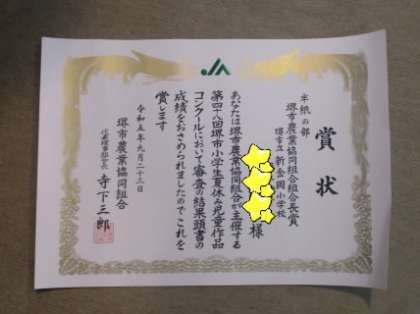 賞状
半紙の部
堺市農業協同組合組合長賞
堺市立新金岡小学校
様
あなたは堺市農業協同組合が主催する
第四十八回堺市小学生夏休み児童作品
コンクールにおいて審査の結果頭書の
成績をおさめられましたのでこれを
賞します
令和五年九月二十三日
堺市農業協同組合
代表理事組合長 寺下三郎
JA